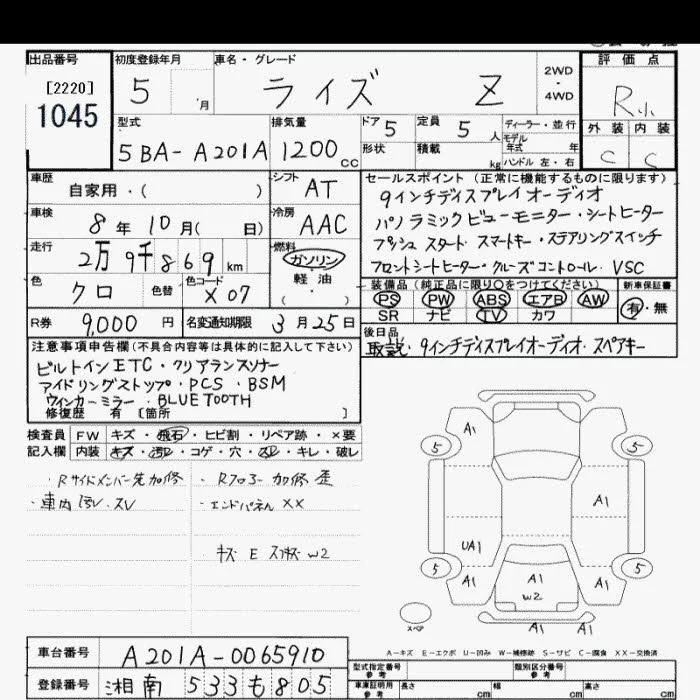 出品番号
[2220]
1045
初度登録年月
5 月
車名・グレード
ライズ Z
2WD
4WD
評価点
R小
外装 内装
C C
型式
5BA-A201A
排気量
1200cc
ドア 5
定員 5 人
形状 積載 kg
ディーラー・並行
モデル年式 年
ハンドル 左・右
車歴
自家用・( )
シフト AT
車検
8年10月( 日)
冷房 AAC
走行
2万9千869km
燃料
ガソリン
軽油
色
クロ
色替
色コード X07
R券 9,000円
名変通知期限 3月25日
セールスポイント(正常に機能するものに限ります)
9インチディスプレイオーディオ
パノラミックビューモニター・シートヒーター
プッシュスタート スマートキー・ステアリングスイッチ
フロントシートヒーター・クルーズコントロール VSC
装備品(純正品に限り○をつけてください)
PS PW ABS エアB AW
SR ナビ TV カワ
新車保証書
有・無
後日品
取説・9インチディスプレイオーディオ・スペアキー
注意事項申告欄(不具合内容等は具体的に記入して下さい)
ビルトインETC・クリアランスソナー
アイドリングストップ・PCS・BSM
ウィンカーミラー・BLUETOOTH
修復歴 有 [箇所 ]
検査員 FW キズ・飛石・ヒビ割・リペア跡・×要
記入欄 内装 キズ・汚レ・コゲ・穴・スレ・キレ・破レ
Rサイドメンバー先加修
・車内汚レ・スレ
・Rフロアー加修歪
・エンドパネルXX
キズ E W2
A1
5
5
A1
UA1
5
5
A1
A1
W2
A1
スペア
A1
A1
A－キズ E－エクボ U－凹み W－補修跡 S－サビ C－腐食 XX－交換済
車台番号 A201A-0065910
登録番号 湘南 533も805
型式指定番号 参考
類別区分番号 参考
車庫証明用 参考 長さ cm 幅 cm 高さ cm